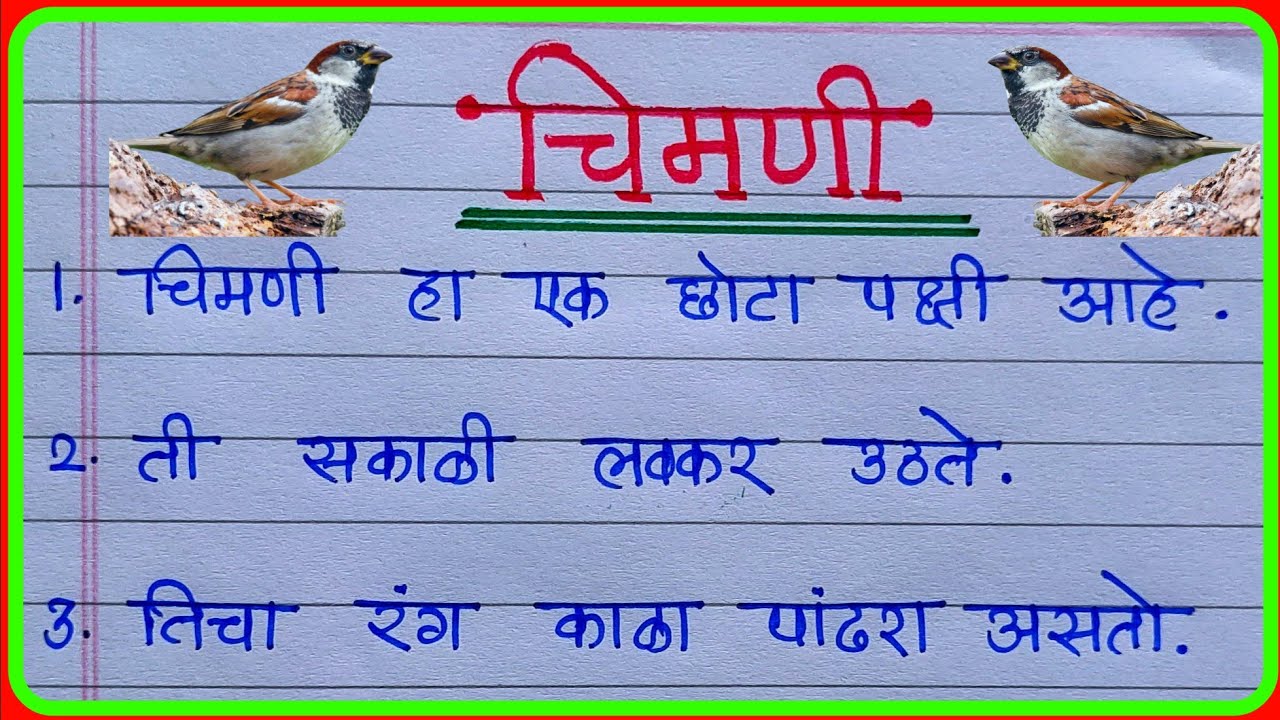 चिमणी
1. चिमणी हा एक छोटा पक्षी आहे.
2. ती सकाळी लवकर उठते.
3. तिचा रंग काळा पांढरा असतो.